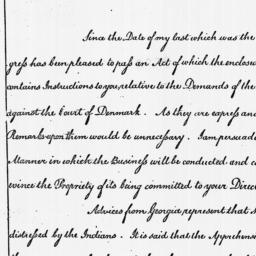 Since the Date of my last which was the
gress has been pleased to pass an Act of which the enclos
ontains Instructions to you, relative to the Demands of the
against the Court of Denmark. As they are express an
Remarks upon them would be unnecessary. I am persuad
Manner in which the Business will be conducted and c
vince the Propriety of its being committed to your Direc
Advices from Georgia represent that
distressed by the Indians. It is said that the Apprehens